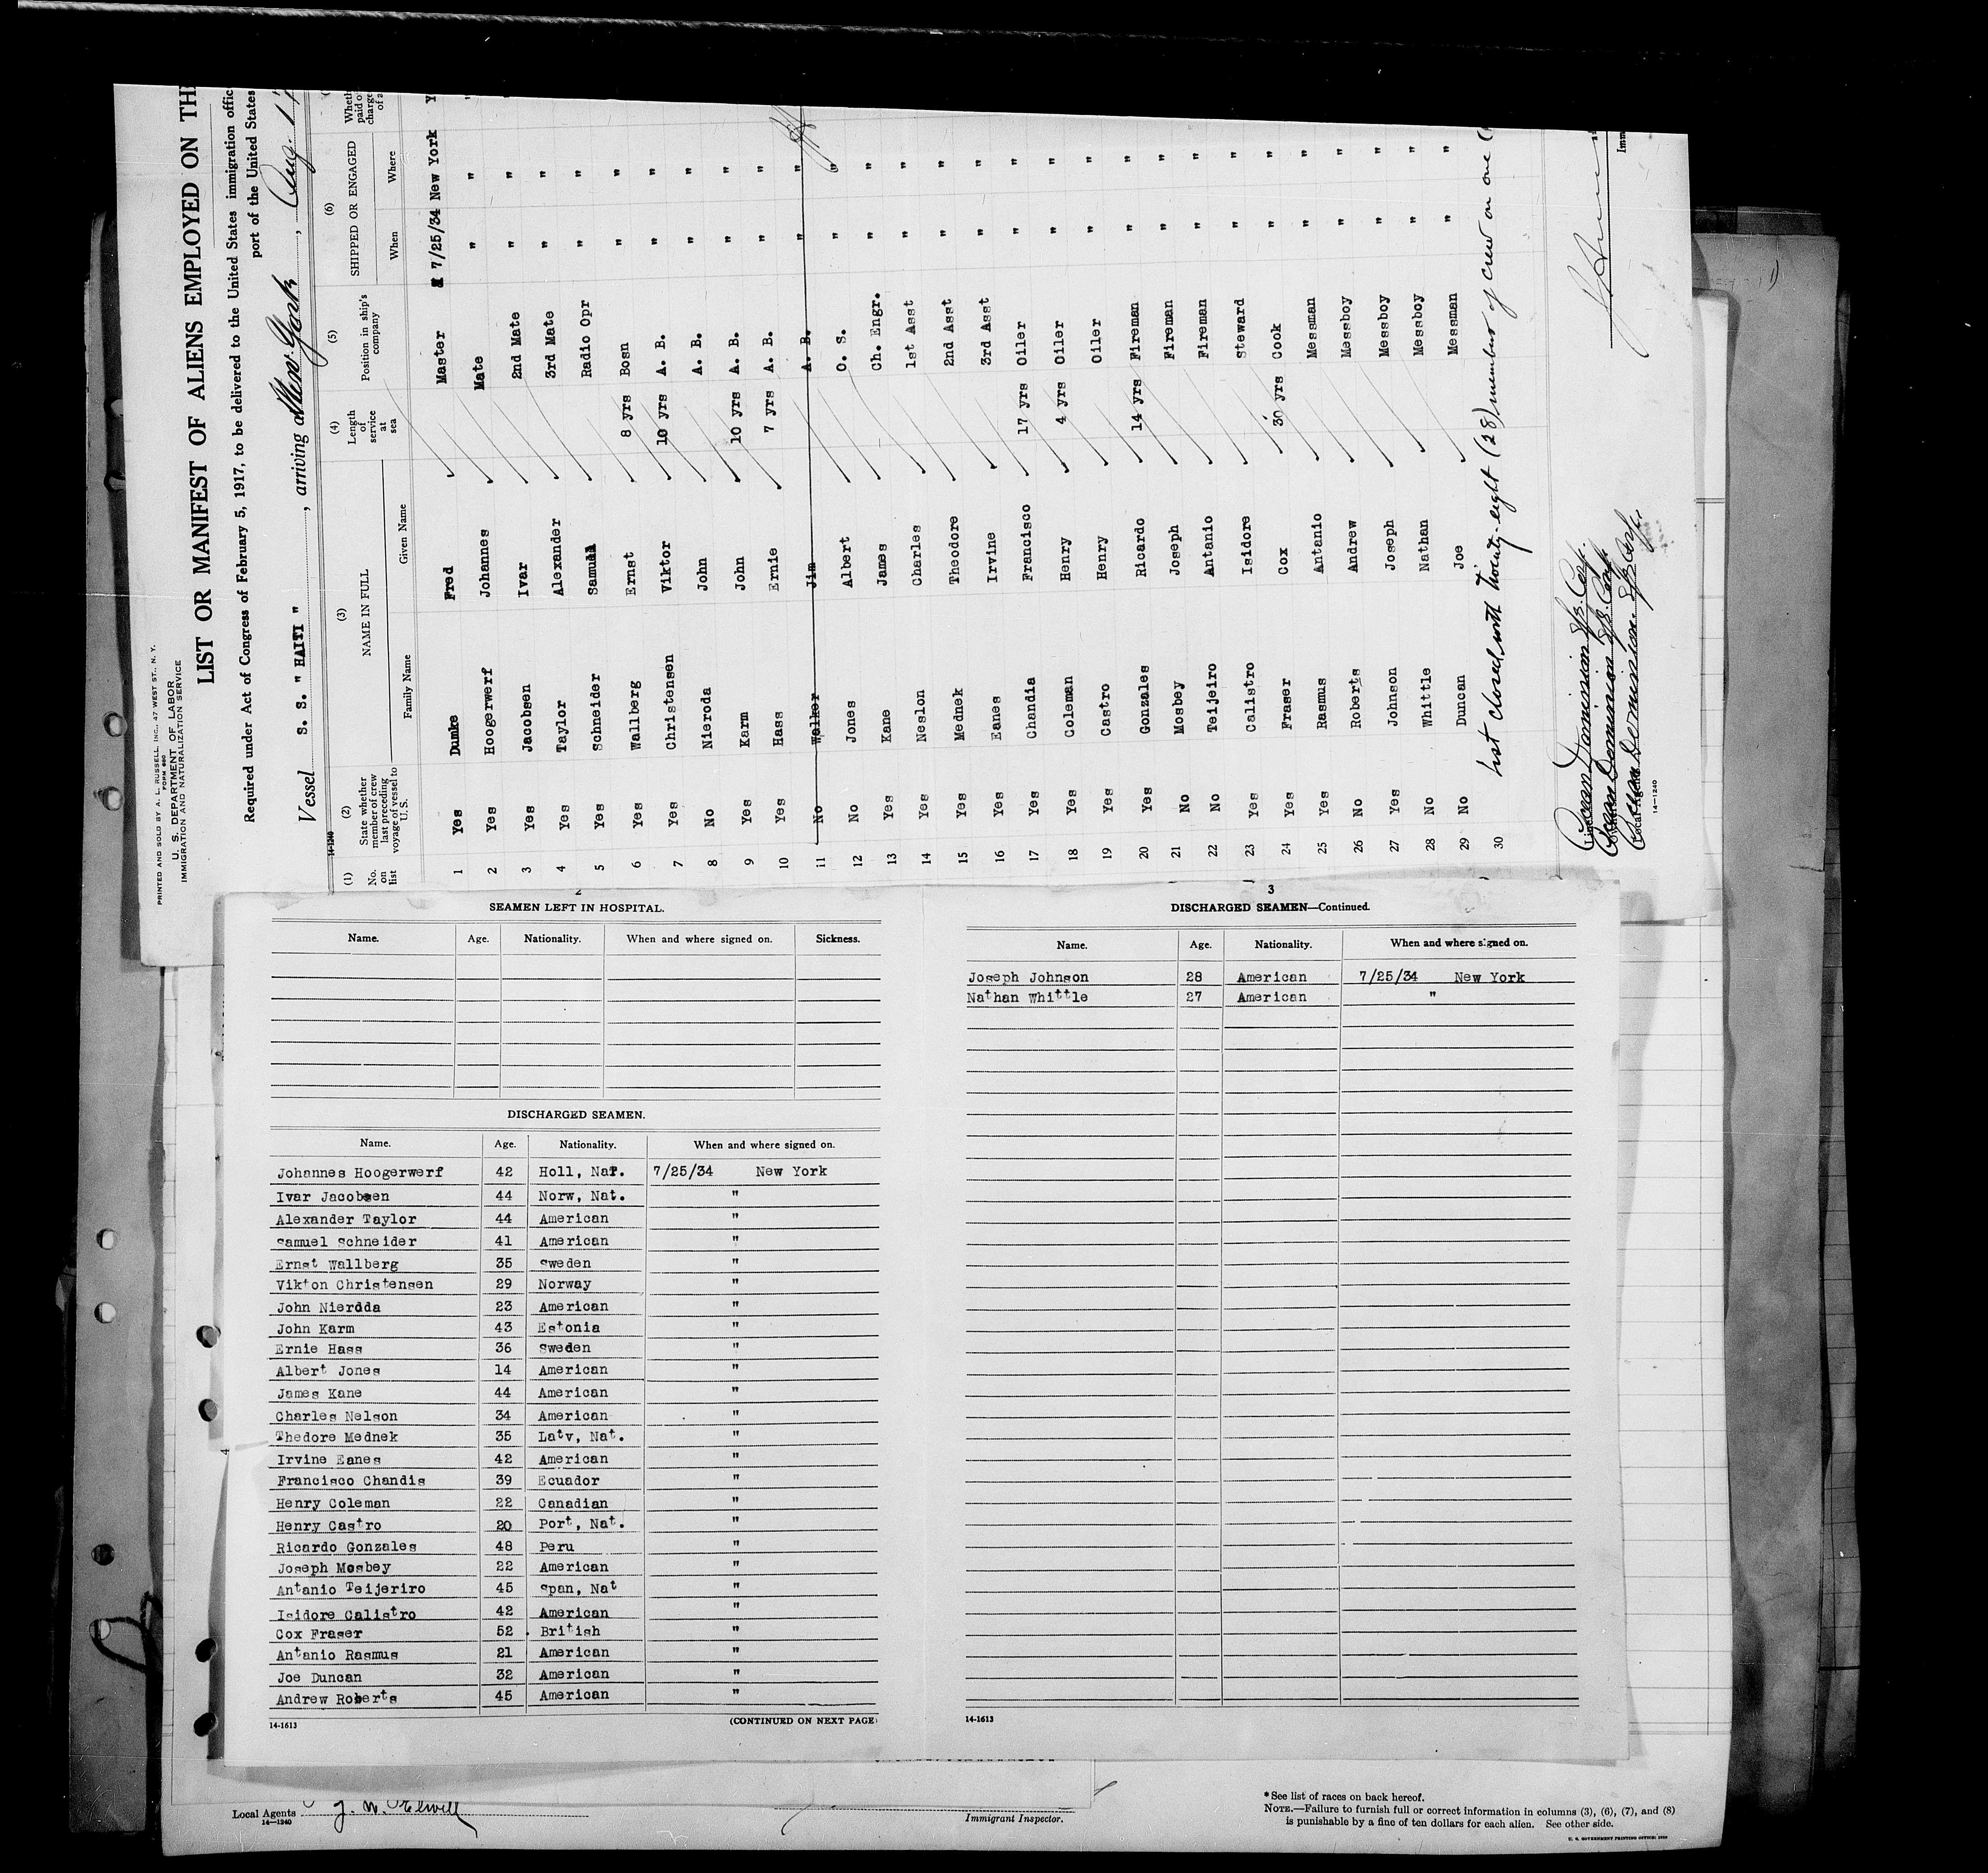 PRINTED AND SOLD BY A. L. RUSSELL, INC., 47 WEST ST., N. Y.
FORM 680
U. S. DEPARTMENT OF LABOR
IMMIGRATION AND NATURALIZATION SERVICE
LIST OR MANIFEST OF ALIENS EMPLOYED ON TH
Required under Act of Congress of February 5, 1917, to be delivered to the United States immigration offic
port of the United States
Vessel S. S. " HAITI ", arriving at New York, Aug. 17
14-1240
(1) (2) (3) (4) (5) (6)
No. on list State whether member of crew last preceding voyage of vessel to U. S. NAME IN FULL Length of service at sea Position in ship's company SHIPPED OR ENGAGED Wheth paid o charge of a
Family Name Given Name When Where
1 Yes Dumke Fred Master 7/25/34 New York Y
2 Yes Hoogerwerf Johannes Mate " "
3 Yes Jacobsen Ivar 2nd Mate " "
4 Yes Taylor Alexander 3rd Mate " "
5 Yes Schneider Samuel Radio Opr " "
6 Yes Wallberg Ernst 8 yrs Bosn " "
7 Yes Christensen Viktor 10 yrs A. B. " "
8 No Nieroda John A. B. " "
9 Yes Karm John 10 yrs A. B. " "
10 Yes Hass Ernie 7 yrs A. B. " "
11 No Walker Jim A. B. " "
12 No Jones Albert O. S. " "
13 Yes Kane James Ch. Engr. " "
14 Yes Neslon Charles 1st Asst " "
15 Yes Mednek Theodore 2nd Asst " "
16 Yes Eanes Irvine 3rd Asst " "
17 Yes Chandia Francisco 17 yrs Oiler " "
18 Yes Coleman Henry 4 yrs Oiler " "
19 Yes Castro Henry Oiler " "
20 Yes Gonzales Ricardo 14 yrs Fireman " "
21 No Mosbey Joseph Fireman " "
22 No Teijeiro Antanio Fireman " "
23 Yes Calistro Isidore Steward " "
24 Yes Fraser Cox 30 yrs Cook " "
25 Yes Rasmus Antanio Messman " "
26 No Roberts Andrew Messboy " "
27 Yes Johnson Joseph Messboy " "
28 No Whittle Nathan Messboy " "
29 No Duncan Joe Messman " "
30 List closed with twenty-eight (28) members of crew on one (
Ocean Dominion S/S. Corp.
Ocean Dominion S/S. Corp.
Ocean Dominion S/S Corp.
Local Agents
14—1240
Imm
2
SEAMEN LEFT IN HOSPITAL.
Name. Age. Nationality. When and where signed on. Sickness.
DISCHARGED SEAMEN.
Name. Age. Nationality. When and where signed on.
Johannes Hoogerwerf 42 Holl, Nat. 7/25/34 New York
Ivar Jacobsen 44 Norw, Nat. "
Alexander Taylor 44 American "
Samuel Schneider 41 American "
Ernst Wallberg 35 Sweden "
Vikton Christensen 29 Norway "
John Nierdda 23 American "
John Karm 43 Estonia "
Ernie Hass 36 Sweden "
Albert Jones 14 American "
James Kane 44 American "
Charles Nelson 34 American "
Thedore Mednek 35 Latv, Nat. "
Irvine Eanes 42 American "
Francisco Chandis 39 Ecuador "
Henry Coleman 22 Canadian "
Henry Castro 20 Port, Nat. "
Ricardo Gonzales 48 Peru "
Joseph Mosbey 22 American "
Antanio Teijeriro 45 Span, Nat "
Isidore Calistro 42 American "
Cox Fraser 52 British "
Antanio Rasmus 21 American "
Joe Duncan 32 American "
Andrew Roberts 45 American "
14-1613 (CONTINUED ON NEXT PAGE)
3
DISCHARGED SEAMEN—Continued.
Name. Age. Nationality. When and where signed on.
Joseph Johnson 28 American 7/25/34 New York
Nathan Whittle 27 American "
14-1613
4
Local Agents J. W. Elwill
14—1240
Immigrant Inspector.
*See list of races on back hereof.
NOTE.—Failure to furnish full or correct information in columns (3), (6), (7), and (8)
is punishable by a fine of ten dollars for each alien. See other side.
U. S. GOVERNMENT PRINTING OFFICE: